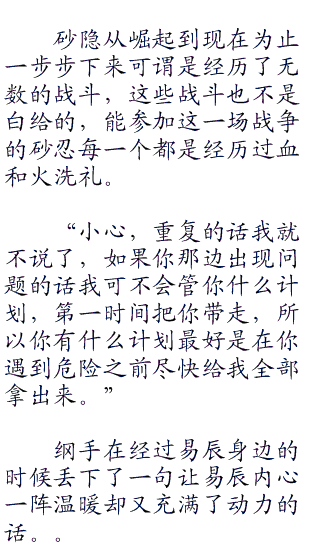 砂隐从崛起到现在为止
一步步下来可谓是经历了无
数的战斗，这些战斗也不是
白给的，能参加这一场战争
的砂忍每一个都是经历过血
和火洗礼。
“小心，重复的话我就
不说了，如果你那边出现问
题的话我可不会管你什么计
划，第一时间把你带走，所
以你有什么计划最好是在你
遇到危险之前尽快给我全部
拿出来。”
纲手在经过易辰身边的
时候丢下了一句让易辰内心
一阵温暖却又充满了动力的
话。。